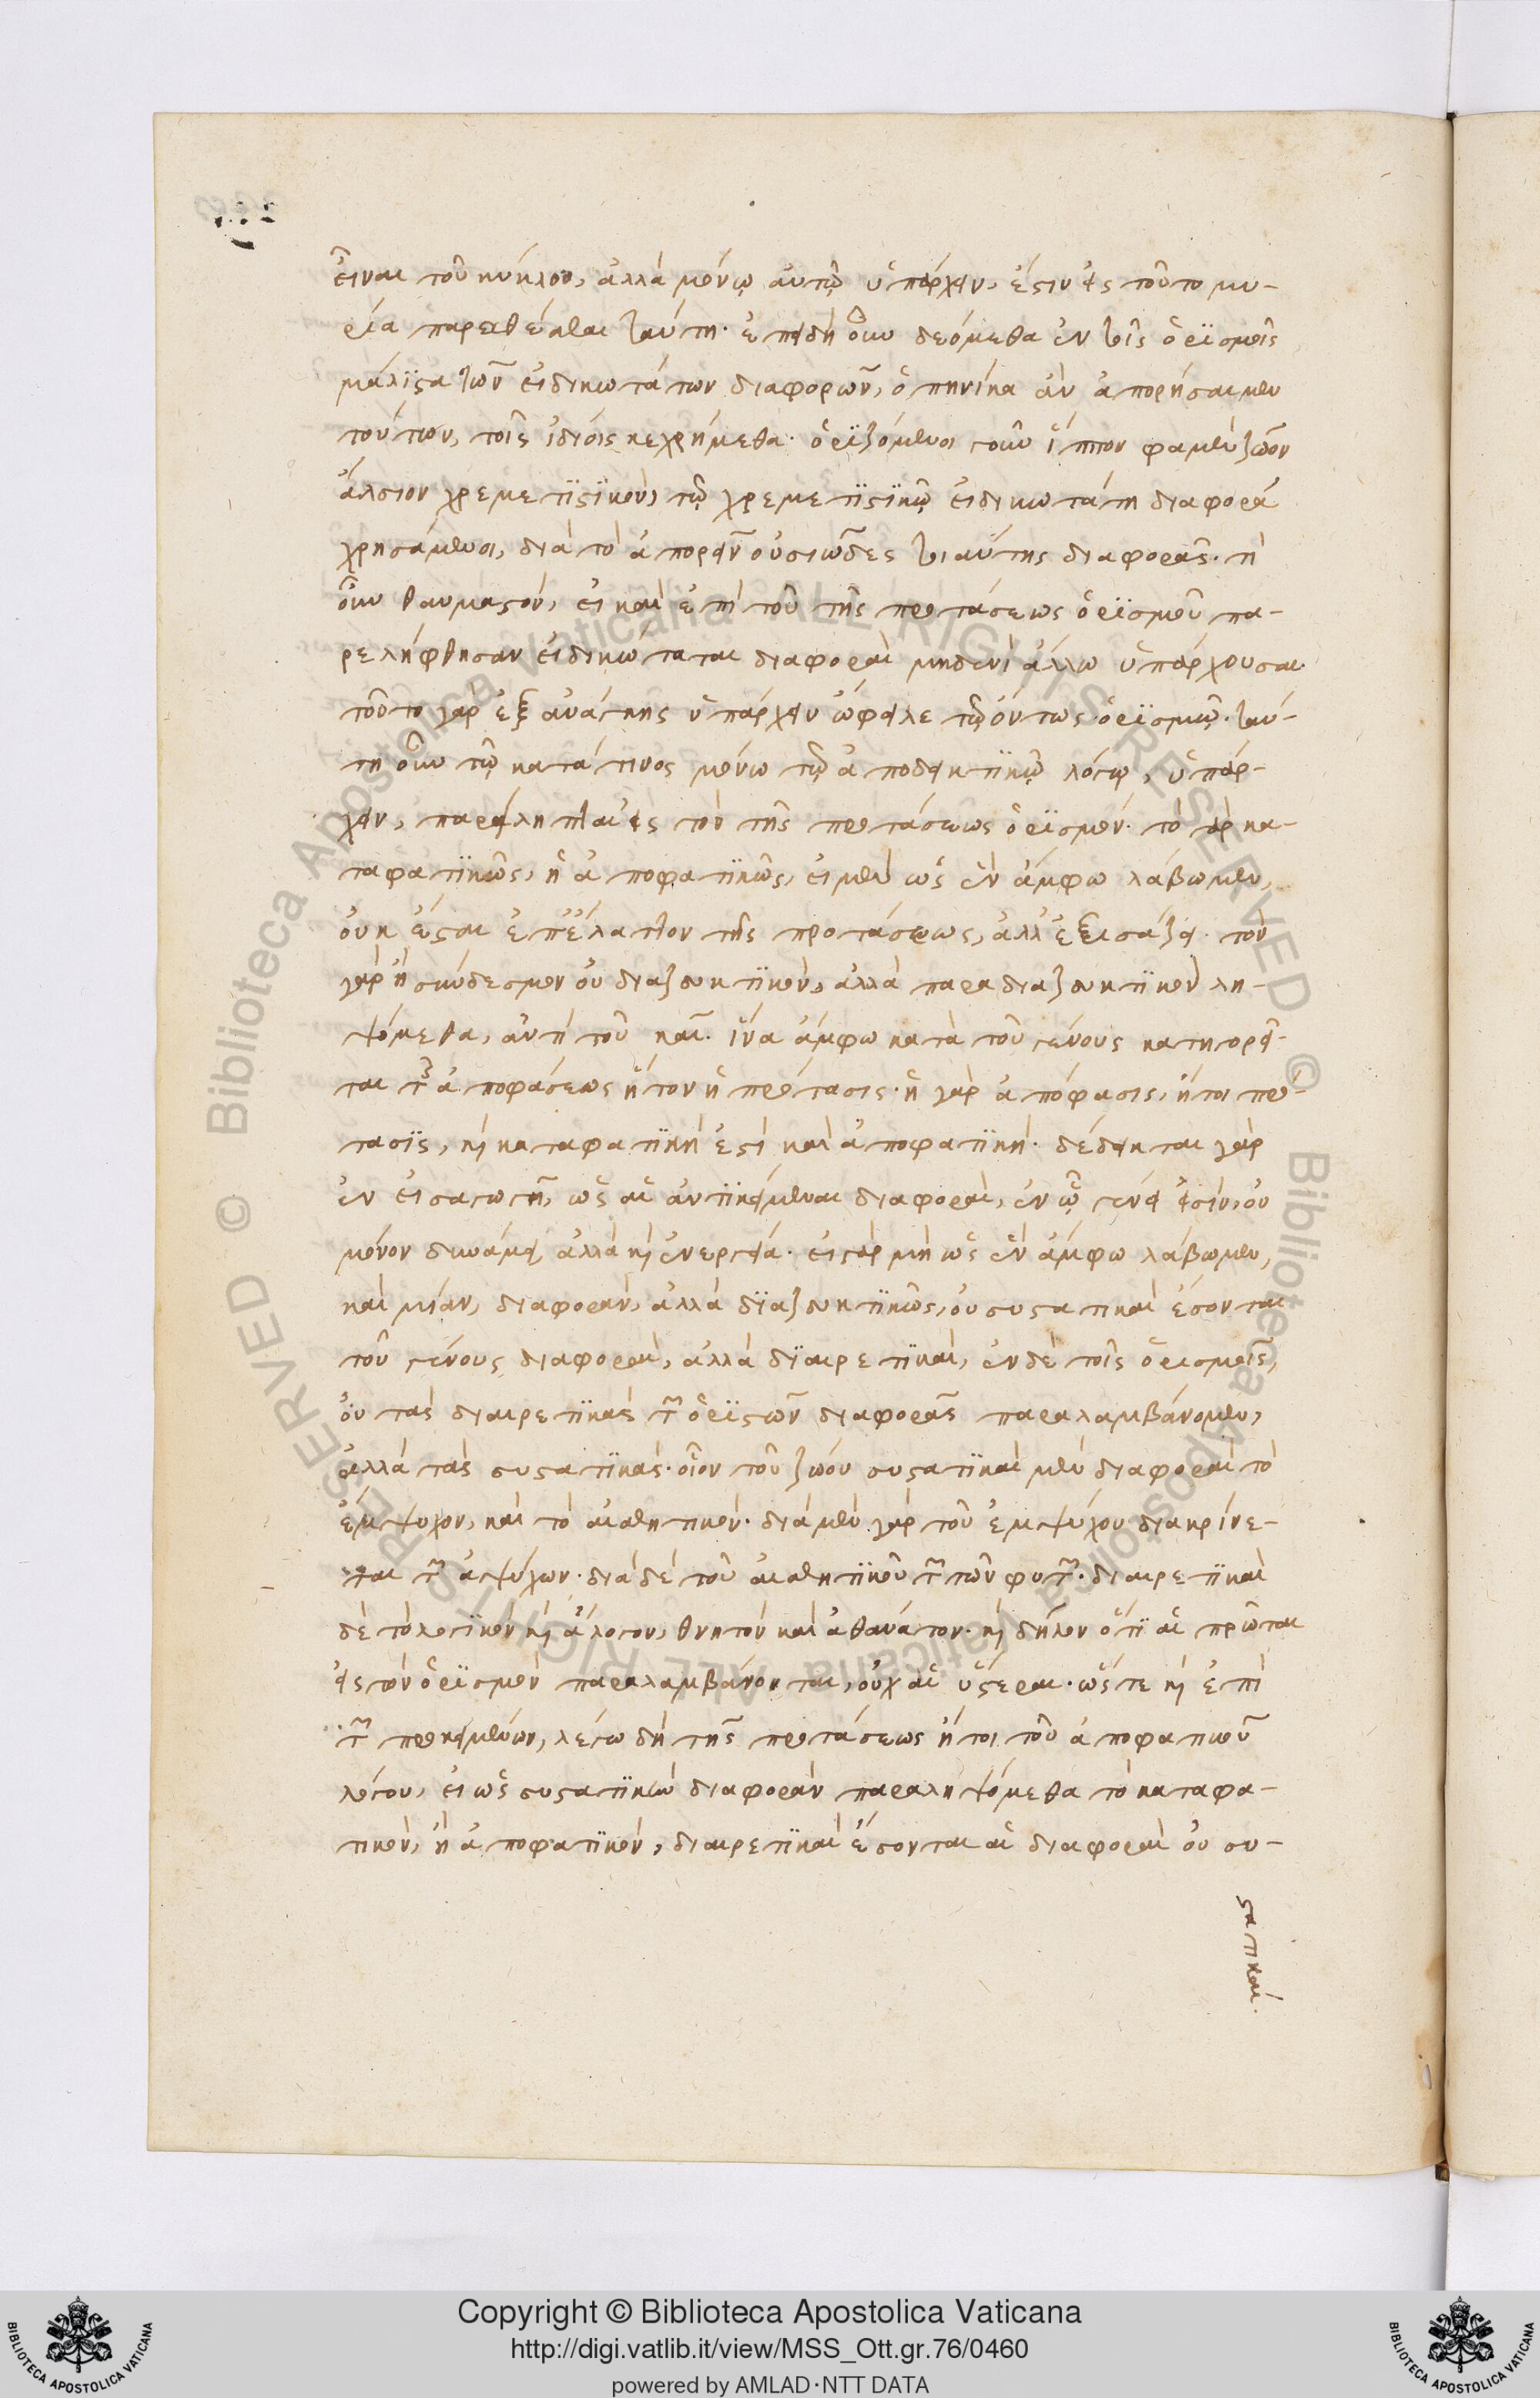 εἶναι τοῦ κύκλου, ἀλλὰ μόνῳ αὐτῷ ὑπάρχειν, ἔστιν εἰς τοῦτο μυ-
ρία παρεκθέσθαι ταύτῃ. ἐπειδὴ οὖν δεόμεθα ἐν τοῖς ὁρϊσμοῖς
μάλϊστα τῶν εἰδικωτάτων διαφορῶν, ὁπηνίκα ἂν ἀπορήσαιμεν
τούτων, τοῖς ἰδίοις κεχρήμεθα. ὁρϊζόμενοι γοῦν ἵππον φαμὲν ζῶον
ἄλογον χρεμετϊστϊκὸν, τῷ χρεμετϊστϊκῷ εἰδικωτάτῃ διαφορᾷ
χρησάμενοι, διὰ τὸ ἀπορεῖν οὐσιώδες τοιαύτης διαφορᾶς. τὶ
οὖν θαυμαστὸν, εἰ καὶ ἐπὶ τοῦ τῆς προτάσεως ὁρϊσμοῦ πα-
ρελήφθησαν εἰδικώταται διαφοραὶ μηδενὶ ἄλλω ὑπάρχουσαι
τοῦτο γὰρ ἐξ ἀνάγκης ὑπάρχειν ὤφειλε τῷ ὄντως ὁρϊσμῷ. ταύ-
τῃ οὖν τῷ κατά τινος μόνω τῷ ἀποδεικτϊκῷ λόγῳ, ὑπάρ-
χειν, παρείληπται εἰς τὸν τῆς προτάσεως ὁρϊσμόν. τὸ γὰρ κα-
ταφατϊκῶς, ἢ ἀποφατϊκῶς, εἰ μὲν ὡς ἓν ἄμφω λάβωμεν,
οὐκ ἔσται ἐπ' ἔλαττον τῆς προτάσεως, ἀλλ' ἐξισάζει. τὸν
γὰρ ἢ σύνδεσμον οὐ διαζευκτϊκὸν, ἀλλὰ παραδιαζευκτϊκὸν λη-
ψόμεθα, ἀντὶ τοῦ καὶ. ἵνα ἄμφω κατὰ τοῦ γένους κατηγορεῖ-
ται τῆς ἀποφάσεως ἤγουν ἡ πρότασις. ἡ γὰρ ἀπόφασις, ἤτοι πρό-
τασϊς, καὶ καταφατϊκή ἐστὶ καὶ ἀποφατϊκὴ. δέδεικται γὰρ
ἐν εἰσαγωγῇ, ὡς αἱ ἀντϊκείμεναι διαφοραὶ, ἐν ᾧ γένει εἰσὶν, οὐ
μόνον δυνάμει ἀλλὰ καὶ ἐνεργείᾳ. εἰ γὰρ μὴ ὡς ἓν ἄμφω λάβωμεν,
καὶ μίαν, διαφορὰν, ἀλλὰ δϊαζευκτϊκῶς, οὐ συστατικαὶ ἔσονται
τοῦ γένους διαφοραὶ, ἀλλὰ δϊαιρετϊκαὶ, ἐν δὲ τοῖς ὁρισμοῖς,
οὐ τὰς διαιρετϊκὰς τῶν ὁρϊστῶν διαφορὰς παραλαμβάνομεν,
ἀλλὰ τὰς συστατϊκὰς. οἷον τοῦ ζώου συστατϊκαὶ μὲν διαφοραὶ τὸ
ἔμψυχον, καὶ τὸ αἰσθητικὸν. διὰ μὲν γὰρ τοῦ ἐμψύχου διακρίνε-
ται τῶν ἀψύχων. διὰ δὲ τοῦ αἰσθητϊκοῦ τῶν φυτῶν. διαιρετϊκαὶ
δὲ τὸ λογϊκὸν καὶ ἄλογον, θνητὸν καὶ ἀθάνατον. καὶ δῆλον ὅτϊ αἱ πρῶται
εἰς τὸν ὁρϊσμὸν παραλαμβάνονται, οὐχ αἱ ὕστεραι. ὥστε καὶ ἐπὶ
τῶν προκειμένων, λέγω δὴ τῆς προτάσεως ἤτοι τοῦ ἀποφατικοῦ
λόγου, εἰ ὡς συστατϊκὴν διαφορὰν παραληψόμεθα τὸ καταφα-
τικὸν, ἢ ἀποφατϊκὸν, διαιρετϊκαὶ ἔσονται αἱ διαφοραὶ οὐ συ-
στατικαί.
Copyright © Biblioteca Apostolica Vaticana
http://digi.vatlib.it/view/MSS_Ott.gr.76/0460
powered by AMLAD·NTT DATA